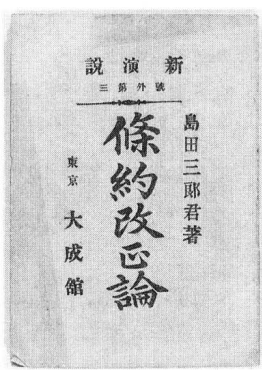 新演説
號外第三
島田三郎君著
條約改正論
東京
大成館